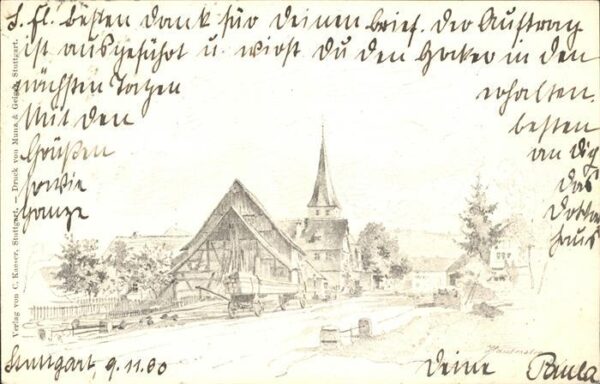 L. Fl. besten Dank für Deinen Brief. Der Auftrag
ist ausgeführt u. wirst Du den Hacker in den
nächsten Tagen erhalten.
Mit den besten
Grüßen an Dich
sowie das
ganze
haus
Stuttgart, 9.11.00
Deine Paula
Verlag von C. Kaiser, Stuttgart. — Druck von Munz & Geiger, Stuttgart.